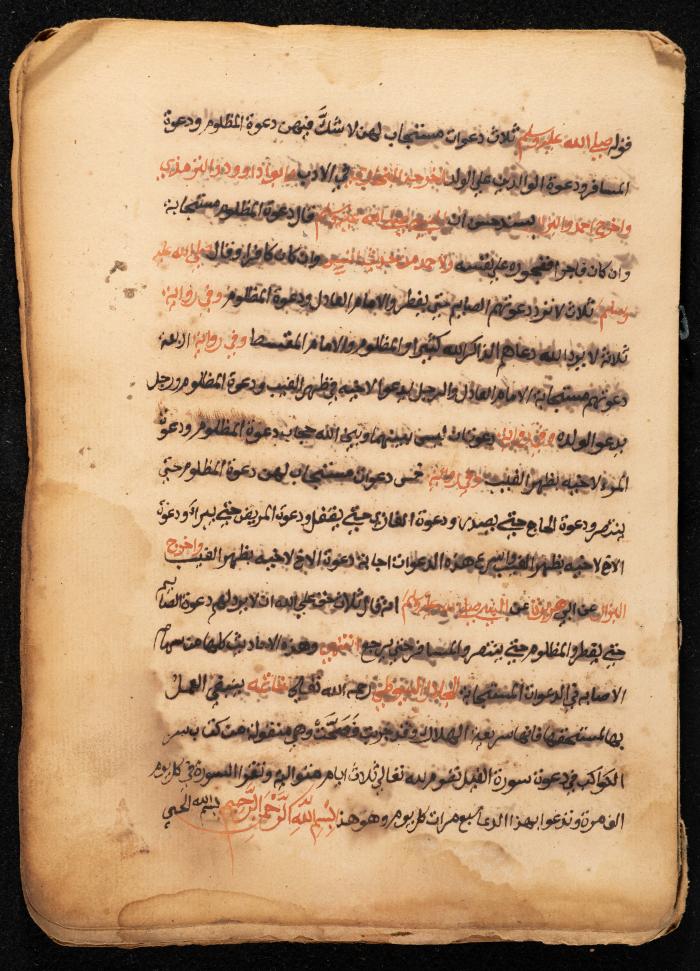 قوله صلى الله عليه وسلم ثلاث دعوات مستجاب لهن لا شكَّ فيهن دعوة المظلوم ودعوة
المسافر ودعوة الوالدين على الولد اخرجه البخاري في الادب وابو داوود والترمذي
واخرج احمد والبزار بسند حسن ان النبي صلى الله عليه وسلم قال دعوة المظلوم مستجابة
وان كان فاجرا ففجوره على نفسه ولاحمد من حديث انس وان كان كافرا وقال صلى الله عليه
وسلم ثلاث لا ترد دعوتهم الصايم حتى يفطر والامام العادل ودعوة المظلوم وفي رواية
ثلاثة لا يرد الله دعاهم الذاكر الله كثيرا والمظلوم والامام المقسط وفي رواية اربعة
دعوتهم مستجابة الامام العادل والرجل يدعوا لاخيه في ظهر الغيب ودعوة المظلوم ورجل
يدعو لولده وفي رواية دعوتان ليس بينهما وبين الله حجاب دعوة المظلوم ودعوة
المرء لاخيه بظهر الغيب وفي رواية خمس دعوات مستجاب لهن دعوة المظلوم حتى
ينتصر ودعوة الحاج حتى يصدر ودعوة الغازي حتى يقفل ودعوة المريض حتى يبراء ودعوة
الاخ لاخيه بظهر الغيب واسرع هذه الدعوات اجابة دعوة الاخ لاخيه بظهر الغيب واخرج
البزار عن ابي هريرة عن النبي صلى الله عليه وسلم انه قال ثلاث حق على الله ان لا يرد لهم دعوة الصايم
حتى يفطر والمظلوم حتى ينتصر والمسافر حتى يرجع انتهى وهذه الاحاديث كلها من سهام
الاصابه في الدعوات المستجابة للجلال السيوطي رحمه الله تعالى خاتمه ينبغي العمل
بها لمستحقها فانها سريعة الهلاك وقد جربت فَصَحَّتْ وهي منقولة من كتاب سر
الكواكب في دعوة سورة الفيل تصوم لله تعالى ثلاث ايام متواليه وتقرا السورة في كل يوم
الف مرة وتدعوا بهذا الدعا سبع مرات كل يوم وهو هذا بِسْمِ اللَّهِ الرَّحْمَنِ الرَّحِيمِ بسم الله الحي